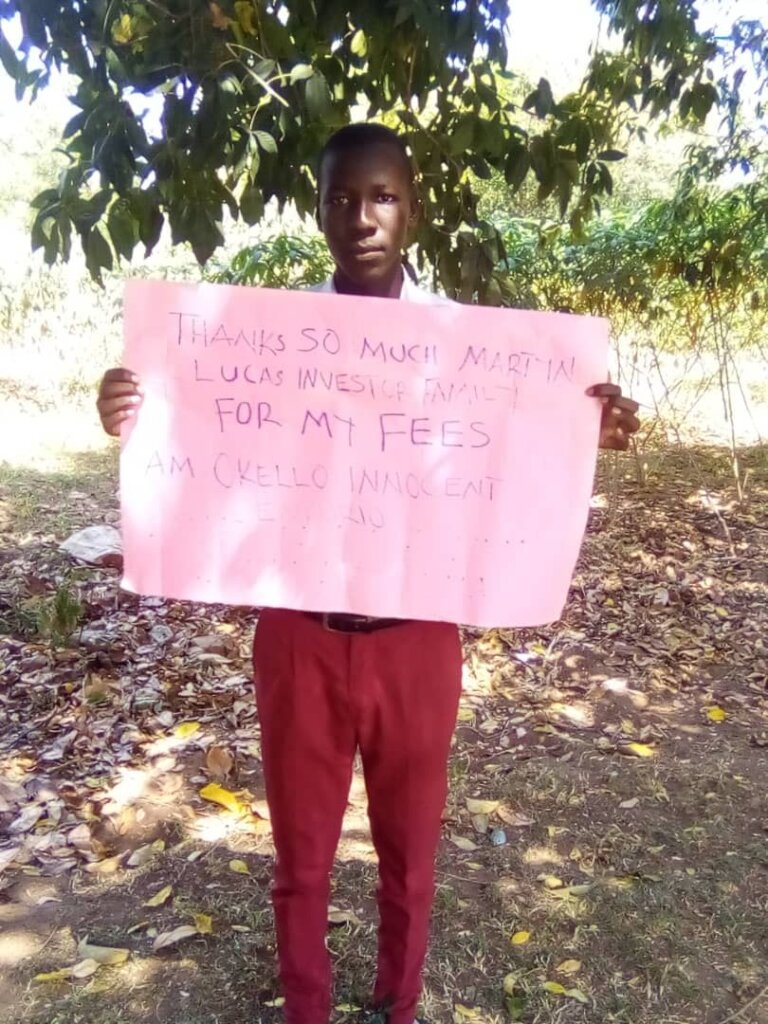 THANKS SO MUCH MARTIN
LUCAS INVESTOR FAMILY
FOR MY FEES
AM OKELLO INNOCENT